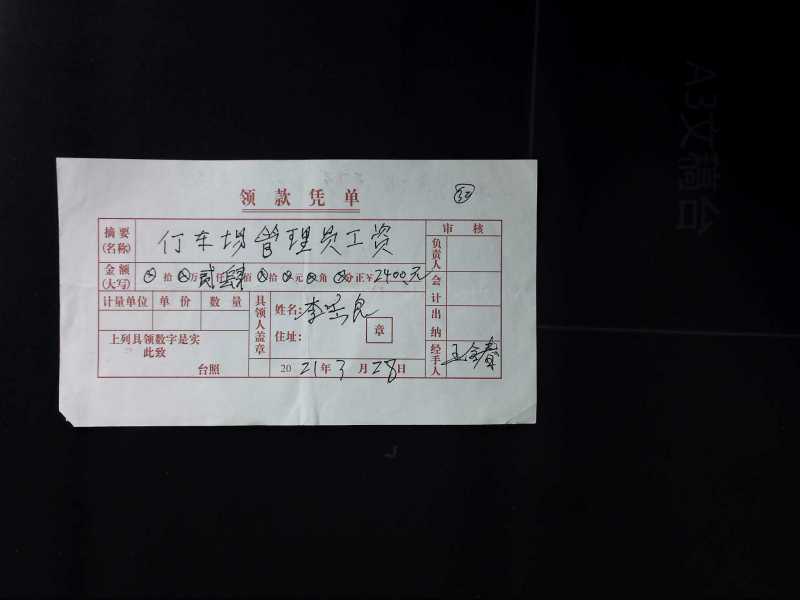 领款凭单
摘要(名称) 停车场管理员工资
金额(大写) ⊗拾⊗万贰仟肆佰⊗拾⊗元⊗角⊗分正¥2400.元
计量单位 单价 数量
上列具领数字是实
此致
台照
具领人盖章
姓名:李
住址:
章
2021年3月28日
审核
负责人
会计
出纳
经手人 王金春
A3文稿台